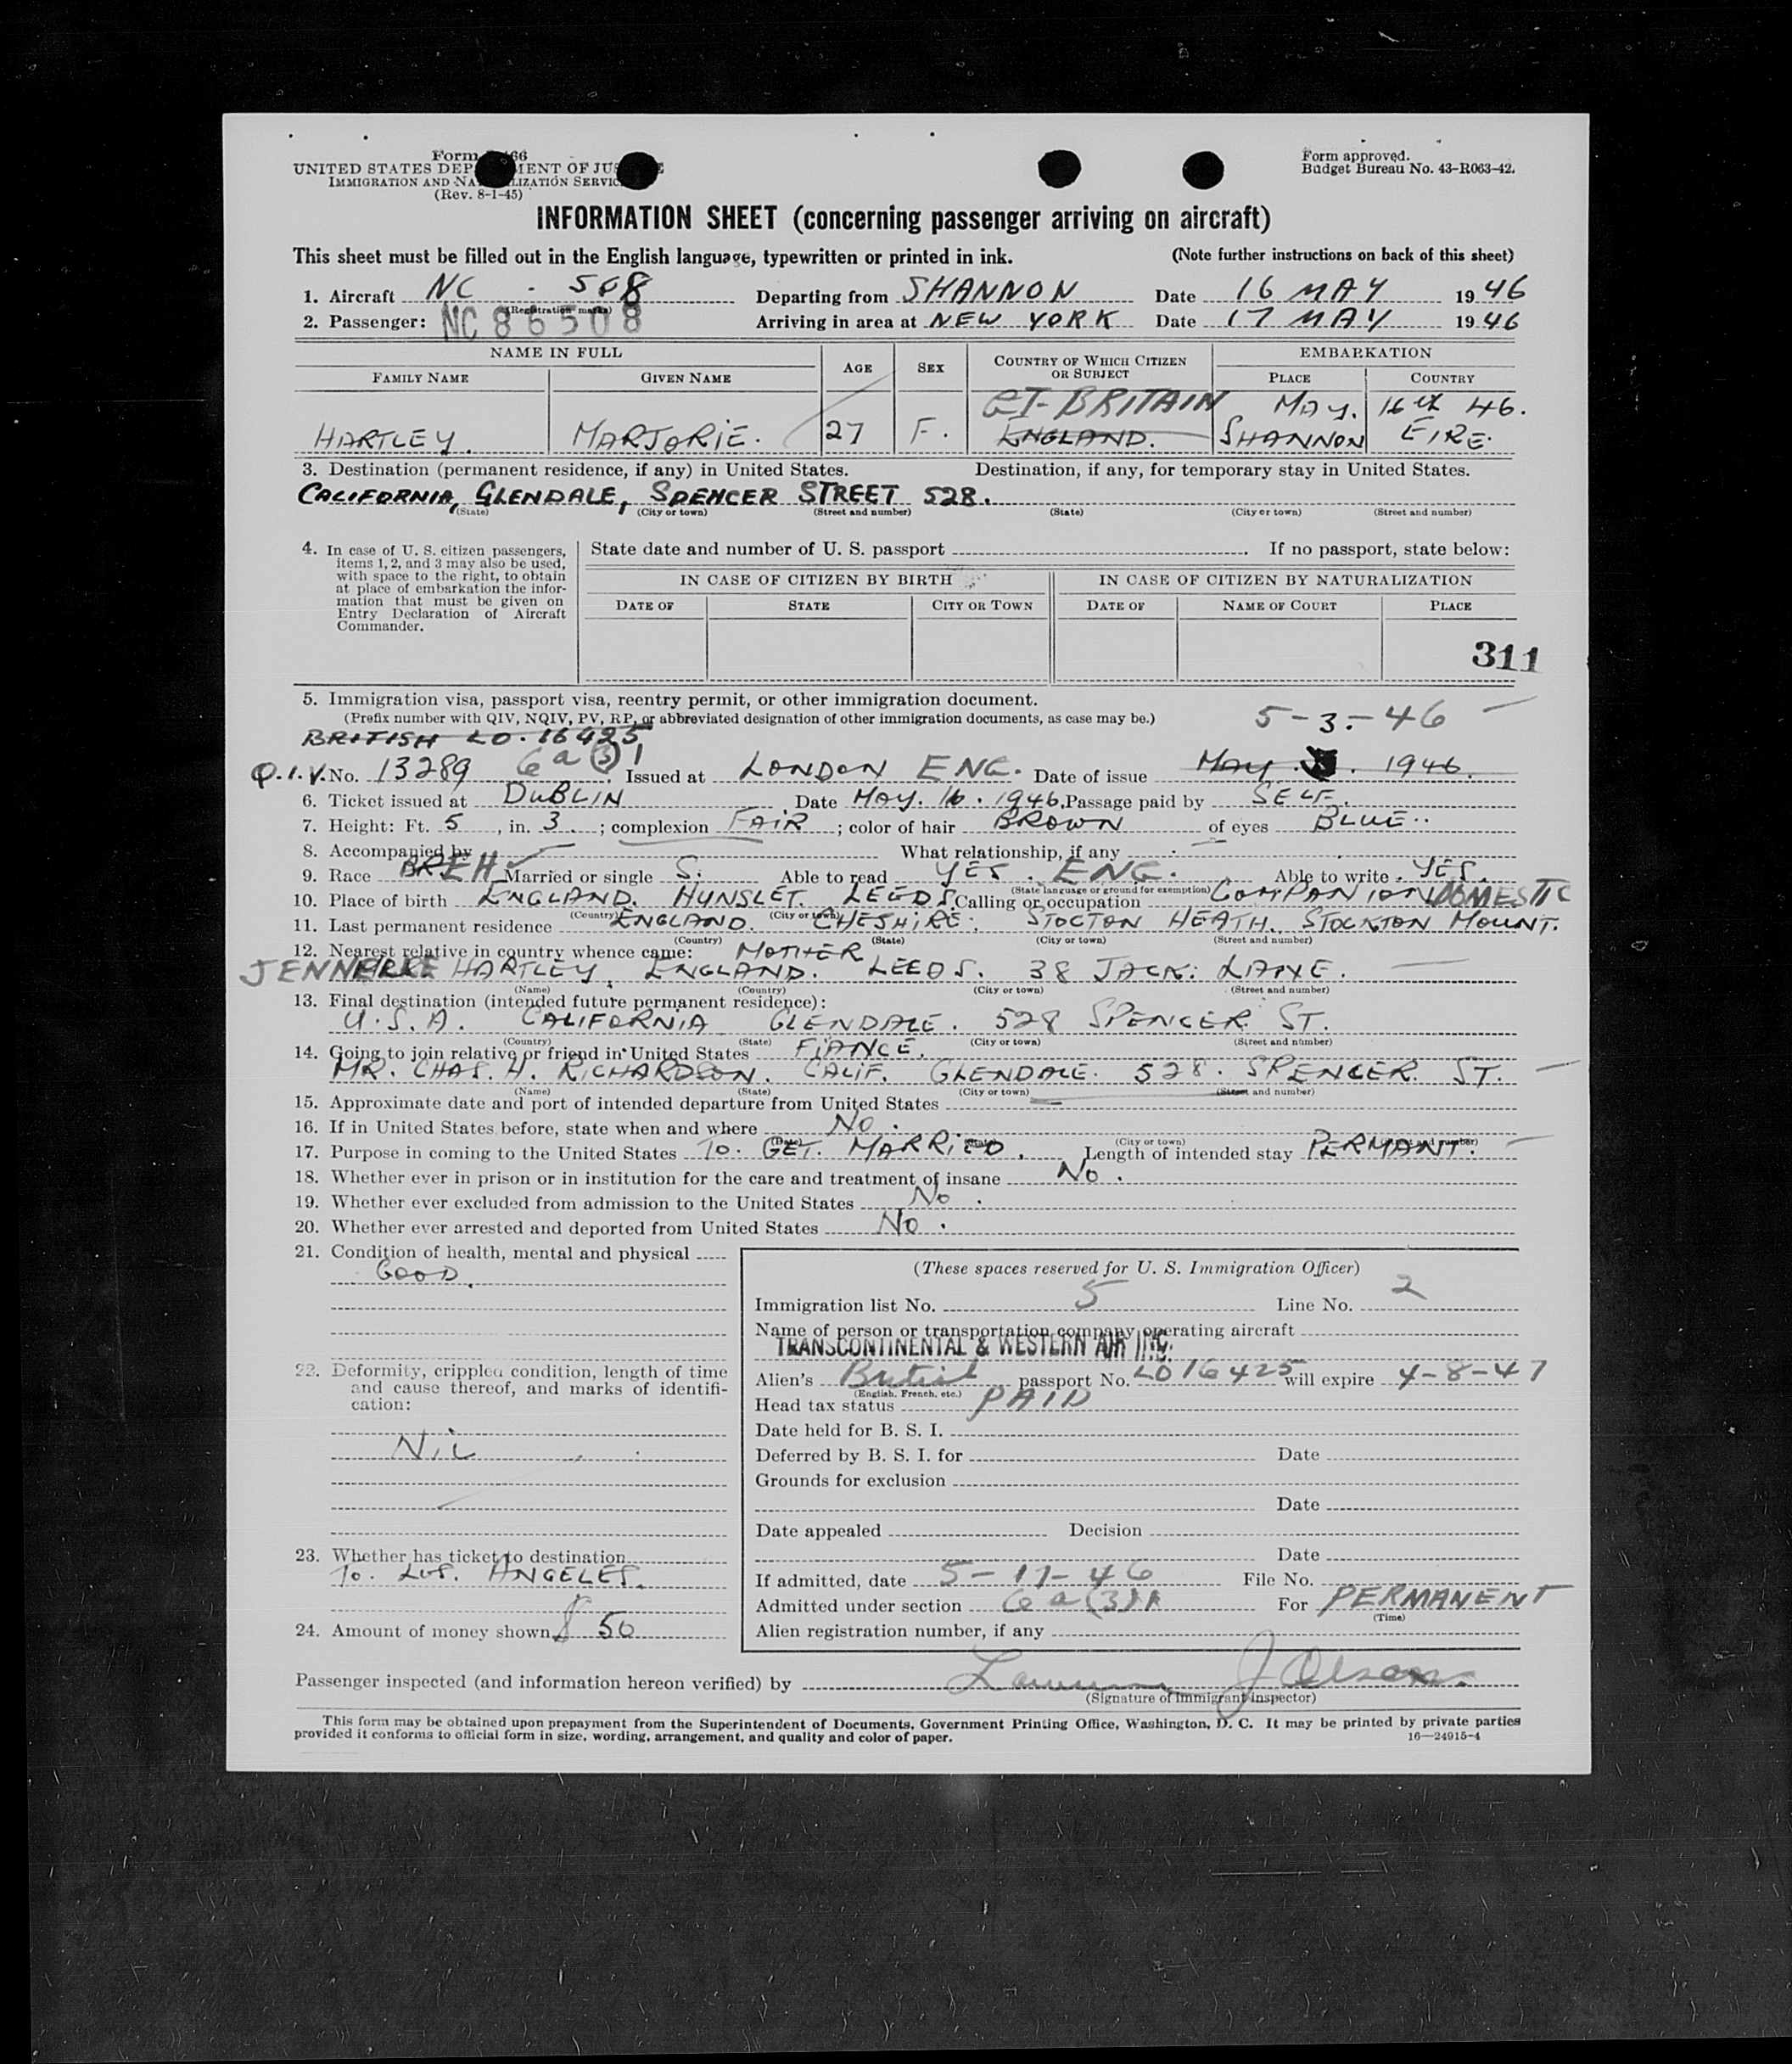 Form 66
UNITED STATES DEP MENT OF JUS E
IMMIGRATION AND NA LIZATION SERVIC
(Rev. 8-1-45)
Form approved.
Budget Bureau No. 43-R063-42.
INFORMATION SHEET (concerning passenger arriving on aircraft)
This sheet must be filled out in the English language, typewritten or printed in ink. (Note further instructions on back of this sheet)
1. Aircraft NC - 508 Departing from SHANNON Date 16 MAY 1946
(Registration marks)
2. Passenger: NC 86508 Arriving in area at NEW YORK Date 17 MAY 1946
NAME IN FULL AGE SEX COUNTRY OF WHICH CITIZEN OR SUBJECT EMBARKATION
FAMILY NAME GIVEN NAME PLACE COUNTRY
GT-BRITAIN MAY. 16th 46.
HARTLEY. MARJORIE. 27 F. ENGLAND. SHANNON EIRE.
3. Destination (permanent residence, if any) in United States. Destination, if any, for temporary stay in United States.
CALIFORNIA, GLENDALE, SPENCER STREET 528.
(State) (City or town) (Street and number) (State) (City or town) (Street and number)
4. In case of U. S. citizen passengers, items 1, 2, and 3 may also be used, with space to the right, to obtain at place of embarkation the information that must be given on Entry Declaration of Aircraft Commander.
State date and number of U. S. passport . If no passport, state below:
IN CASE OF CITIZEN BY BIRTH IN CASE OF CITIZEN BY NATURALIZATION
DATE OF STATE CITY OR TOWN DATE OF NAME OF COURT PLACE
311
5. Immigration visa, passport visa, reentry permit, or other immigration document.
(Prefix number with QIV, NQIV, PV, RP, or abbreviated designation of other immigration documents, as case may be.) 5-3-46
BRITISH LO. 16425
Q.I.V. No. 13289 6a(3)1 Issued at LONDON ENG. Date of issue MAY . 1946.
6. Ticket issued at DUBLIN Date MAY. 16. 1946. Passage paid by SELF.
7. Height: Ft. 5, in. 3.; complexion FAIR; color of hair BROWN of eyes BLUE..
8. Accompanied by What relationship, if any
9. Race Married or single S. Able to read YES. ENG. Able to write YES.
(State language or ground for exemption)
10. Place of birth ENGLAND. HUNSLET. LEEDS. Calling or occupation COMPANION DOMESTIC
(Country) (City or town)
11. Last permanent residence ENGLAND. CHESHIRE: STOCTON HEATH. STOCKTON MOUNT.
(Country) (State) (City or town) (Street and number)
12. Nearest relative in country whence came: MOTHER
HARTLEY, ENGLAND. LEEDS. 38 JACK: LANE.
(Name) (Country) (City or town) (Street and number)
13. Final destination (intended future permanent residence):
U.S.A. CALIFORNIA GLENDALE. 528 SPENCER ST.
(Country) (State) (City or town) (Street and number)
14. Going to join relative or friend in United States FIANCE.
MR. CHAS. H. RICHARDSON. CALIF. GLENDALE. 528. SPENCER. ST.
(Name) (State) (City or town) (Street and number)
15. Approximate date and port of intended departure from United States
16. If in United States before, state when and where NO.
(Date) (State) (City or town) (Street and number)
17. Purpose in coming to the United States TO. GET. MARRIED. Length of intended stay PERMANT.
18. Whether ever in prison or in institution for the care and treatment of insane NO.
19. Whether ever excluded from admission to the United States NO.
20. Whether ever arrested and deported from United States NO.
21. Condition of health, mental and physical
GOOD.
22. Deformity, crippled condition, length of time and cause thereof, and marks of identification:
NIL
23. Whether has ticket to destination
TO. LOS. ANGELES.
24. Amount of money shown $ 50
(These spaces reserved for U. S. Immigration Officer)
Immigration list No. 5 Line No. 2
Name of person or transportation company operating aircraft
TRANSCONTINENTAL & WESTERN AIR INC.
Alien's British passport No. LO16425 will expire 4-8-47
(English, French, etc.)
Head tax status PAID
Date held for B. S. I.
Deferred by B. S. I. for Date
Grounds for exclusion
Date
Date appealed Decision
Date
If admitted, date 5-17-46 File No.
Admitted under section 6a(3)1 For PERMANENT
(Time)
Alien registration number, if any
Passenger inspected (and information hereon verified) by
(Signature of Immigrant Inspector)
This form may be obtained upon prepayment from the Superintendent of Documents, Government Printing Office, Washington, D. C. It may be printed by private parties
provided it conforms to official form in size, wording, arrangement, and quality and color of paper. 16—24915-4